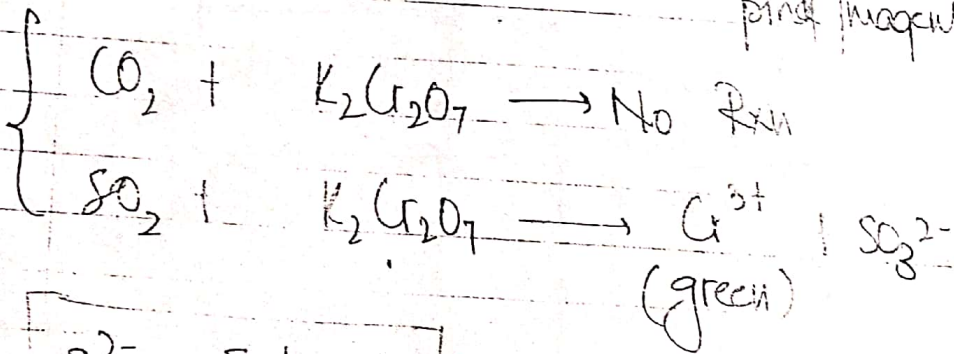 CO₂ + K₂Cr₂O₇ → No Rxn
SO₂ + K₂Cr₂O₇ → Cr³⁺ + SO₃²⁻
(green)